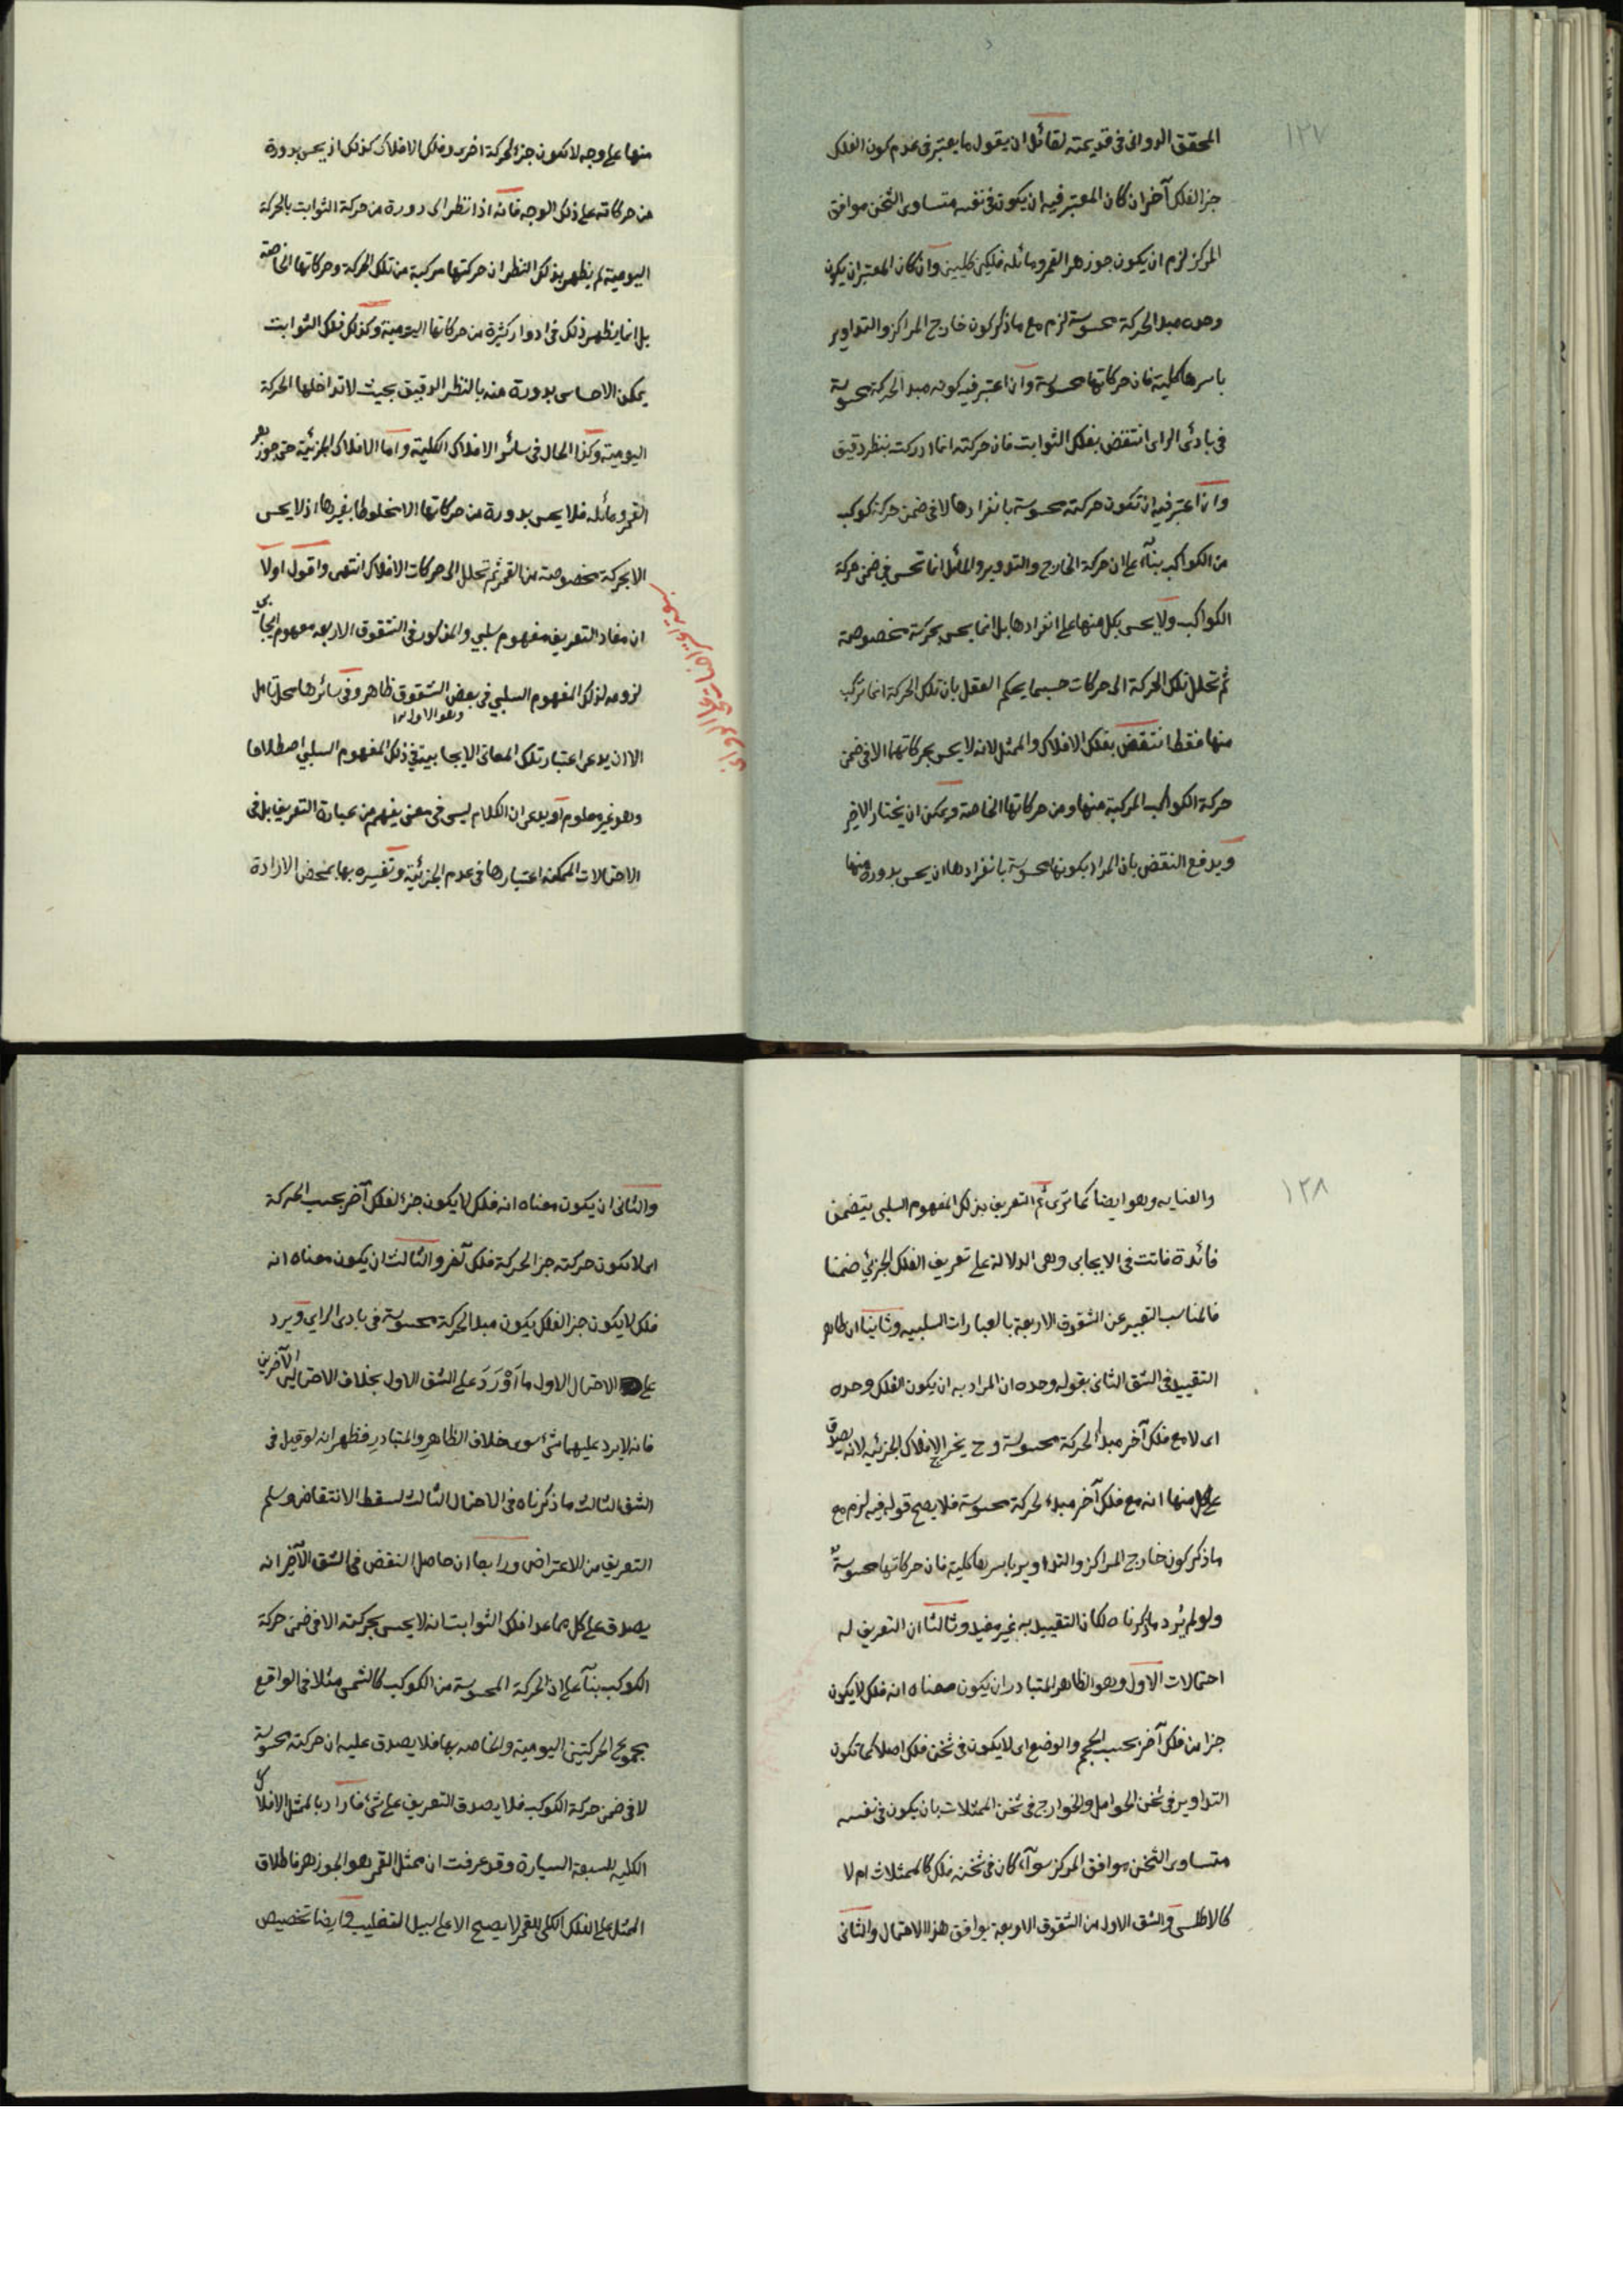 ١٢٧
المحقق الدوانى فى قديمته لقائل ان يقول ما يعتبر فى عدم كون الفلك
جزأ لفلك آخر ان كان المعتبر فيه ان يكون فى نفسه متساوى الثخن موافق
المركز لزم ان يكون جوزهر القمر ومائله فلكين كليين وان كان المعتبر ان يكون
وحده مبدأ لحركة محسوسة لزم مع ما ذكر كون خارج المراكز والتداوير
باسرها كلية فان حركاتها محسوسة وان اعتبر فيه كونه مبدأ لحركة محسوسة
فى بادئ الراى انتقض بفلك الثوابت فان حركته انما ادركت بنظر دقيق
وان اعتبر فيه ان تكون حركته محسوسة بانفرادها لا فى ضمن حركة كوكب
من الكواكب بنآء على ان حركة الخارج والتدوير والمائل انما تحس فى ضمن حركة
الكواكب ولا يحس بكل منها على انفرادها بل انما يحس بحركة مخصوصة
ثم تحلل تلك الحركة الى حركات حسبما يحكم العقل بان تلك الحركة انما تركب
منها فقط انتقض بفلك الافلاك والممثل لانه لا يحس بحركاتها الا فى ضمن
حركة الكواكب المركبة منها ومن حركاتها الخاصة ويمكن ان يختار الاخير
ويدفع النقض بان المراد بكونها محسوسة بانفرادها ان يحس بدورة منها
منها على وجه لا تكون جزأ لحركة اخرى وفلك الافلاك كذلك اذ يحس بدورة
من حركاته على ذلك الوجه فانه اذا نظر الى دورة من حركة الثوابت بالحركة
اليومية لم يظهر بذلك النظر ان حركتها مركبة من تلك الحركة وحركاتها الخاصة
بل انما يظهر ذلك فى ادوار كثيرة من حركاتها اليومية وكذلك فلك الثوابت
يمكن الاحساس بدورة منه بالنظر الدقيق بحيث لا تداخلها الحركة
اليومية وكذا الحال فى سائر الافلاك الكلية واما الافلاك الجزئية حتى جوزهر
القمر ومائله فلا يحس بدورة من حركاتها الا مخلوطا بغيرها اذ لا يحس
الا بحركة مخصوصة من القمر ثم تحلل الى حركات الافلاك انتهى واقول اولا
ان مفاد التعريف مفهوم سلبي والمذكور فى الشقوق الاربعة مفهوم ايجابى
لزومه لذلك المفهوم السلبي فى بعض الشقوق ظاهر وفى سائرها محل تامل
وهو الاول
الا ان يدعى اعتبار تلك المعانى الايجابية فى ذلك المفهوم السلبي اصطلاحا
وهو غير معلوم او يدعى ان الكلام ليس فى معنى يفهم من عبارة التعريف بل فى
الاحتمالات الممكنة اعتبارها فى عدم الجزئية وتفسيره بها بمحض الارادة
١٢٨
والعناية وهو ايضا كما ترى ثم التعريف بذلك المفهوم السلبى يتضمن
فائدة فاتت فى الايجابى وهى الدلالة على تعريف الفلك الجزئي ضمنا
فالمناسب التعبير عن الشقوق الاربعة بالعبارات السلبية وثانيا ان ظاهر
التقييد فى الشق الثانى بقوله وحده ان المراد به ان يكون الفلك وحده
اى لا مع فلك آخر مبدأ لحركة محسوسة وح يخرج الافلاك الجزئية لانه يصدق
على كل منها انه مع فلك آخر مبدء لحركة محسوسة فلا يصح قوله فيه لزم مع
ما ذكر كون خارج المراكز والتداوير باسرها كلية فان حركاتها محسوسة
ولو لم يُرد ما ذكرناه لكان التقييد به غير مفيد وثالثا ان التعريف له
احتمالات الاول وهو الظاهر المتبادر ان يكون معناه انه فلك لا يكون
جزأ من فلك آخر بحسب الحجم والوضع اى لا يكون فى ثخن فلك اصلا كما تكون
التداوير فى ثخن الحوامل والخوارج فى ثخن الممثلات بان يكون فى نفسه
متساوى الثخن موافق المركز سوآء كان فى ثخنه فلك كالممثلات ام لا
كالاطلس والشق الاول من الشقوق الاربعة يوافق هذا الاحتمال والثانى
والثانى ان يكون معناه انه فلك لا يكون جزأ لفلك آخر بحسب الحركة
اى لا تكون حركته جزأ لحركة فلك آخر والثالث ان يكون معناه انه
فلك لا يكون جزأ لفلك يكون مبدأ لحركة محسوسة فى بادى الراي ويرد
على الاحتمال الاول ما اَوْرَدَ على الشق الاول بخلاف الاحتمالين الآخرين
فانه لا يرد عليهما شئ سوى خلاف الظاهر والمتبادر فظهر انه لو قيل فى
الشق الثالث ما ذكرناه فى الاحتمال الثالث لسقط الانتقاض وسلم
التعريف من الاعتراض ورابعا ان حاصل النقض فى الشق الآخر انه
يصدق على كل مما عدا فلك الثوابت انه لا يحس بحركته الا فى ضمن حركة
الكوكب بنآء على ان الحركة المحسوسة من الكوكب كالشمس مثلا فى الواقع
مجموع الحركتين اليومية والخاصة بها فلا يصدق عليه ان حركته محسوسة
لا فى ضمن حركة الكوكب فلا يصدق التعريف على شئ فاراد بالممثل الافلاك
الكلية للسبعة السيارة وقد عرفت ان ممثل القمر هو الجوزهر فاطلاق
الممثل على الفلك الكلى للقمر لا يصح الا على سبيل التغليب وايضا تخصيص